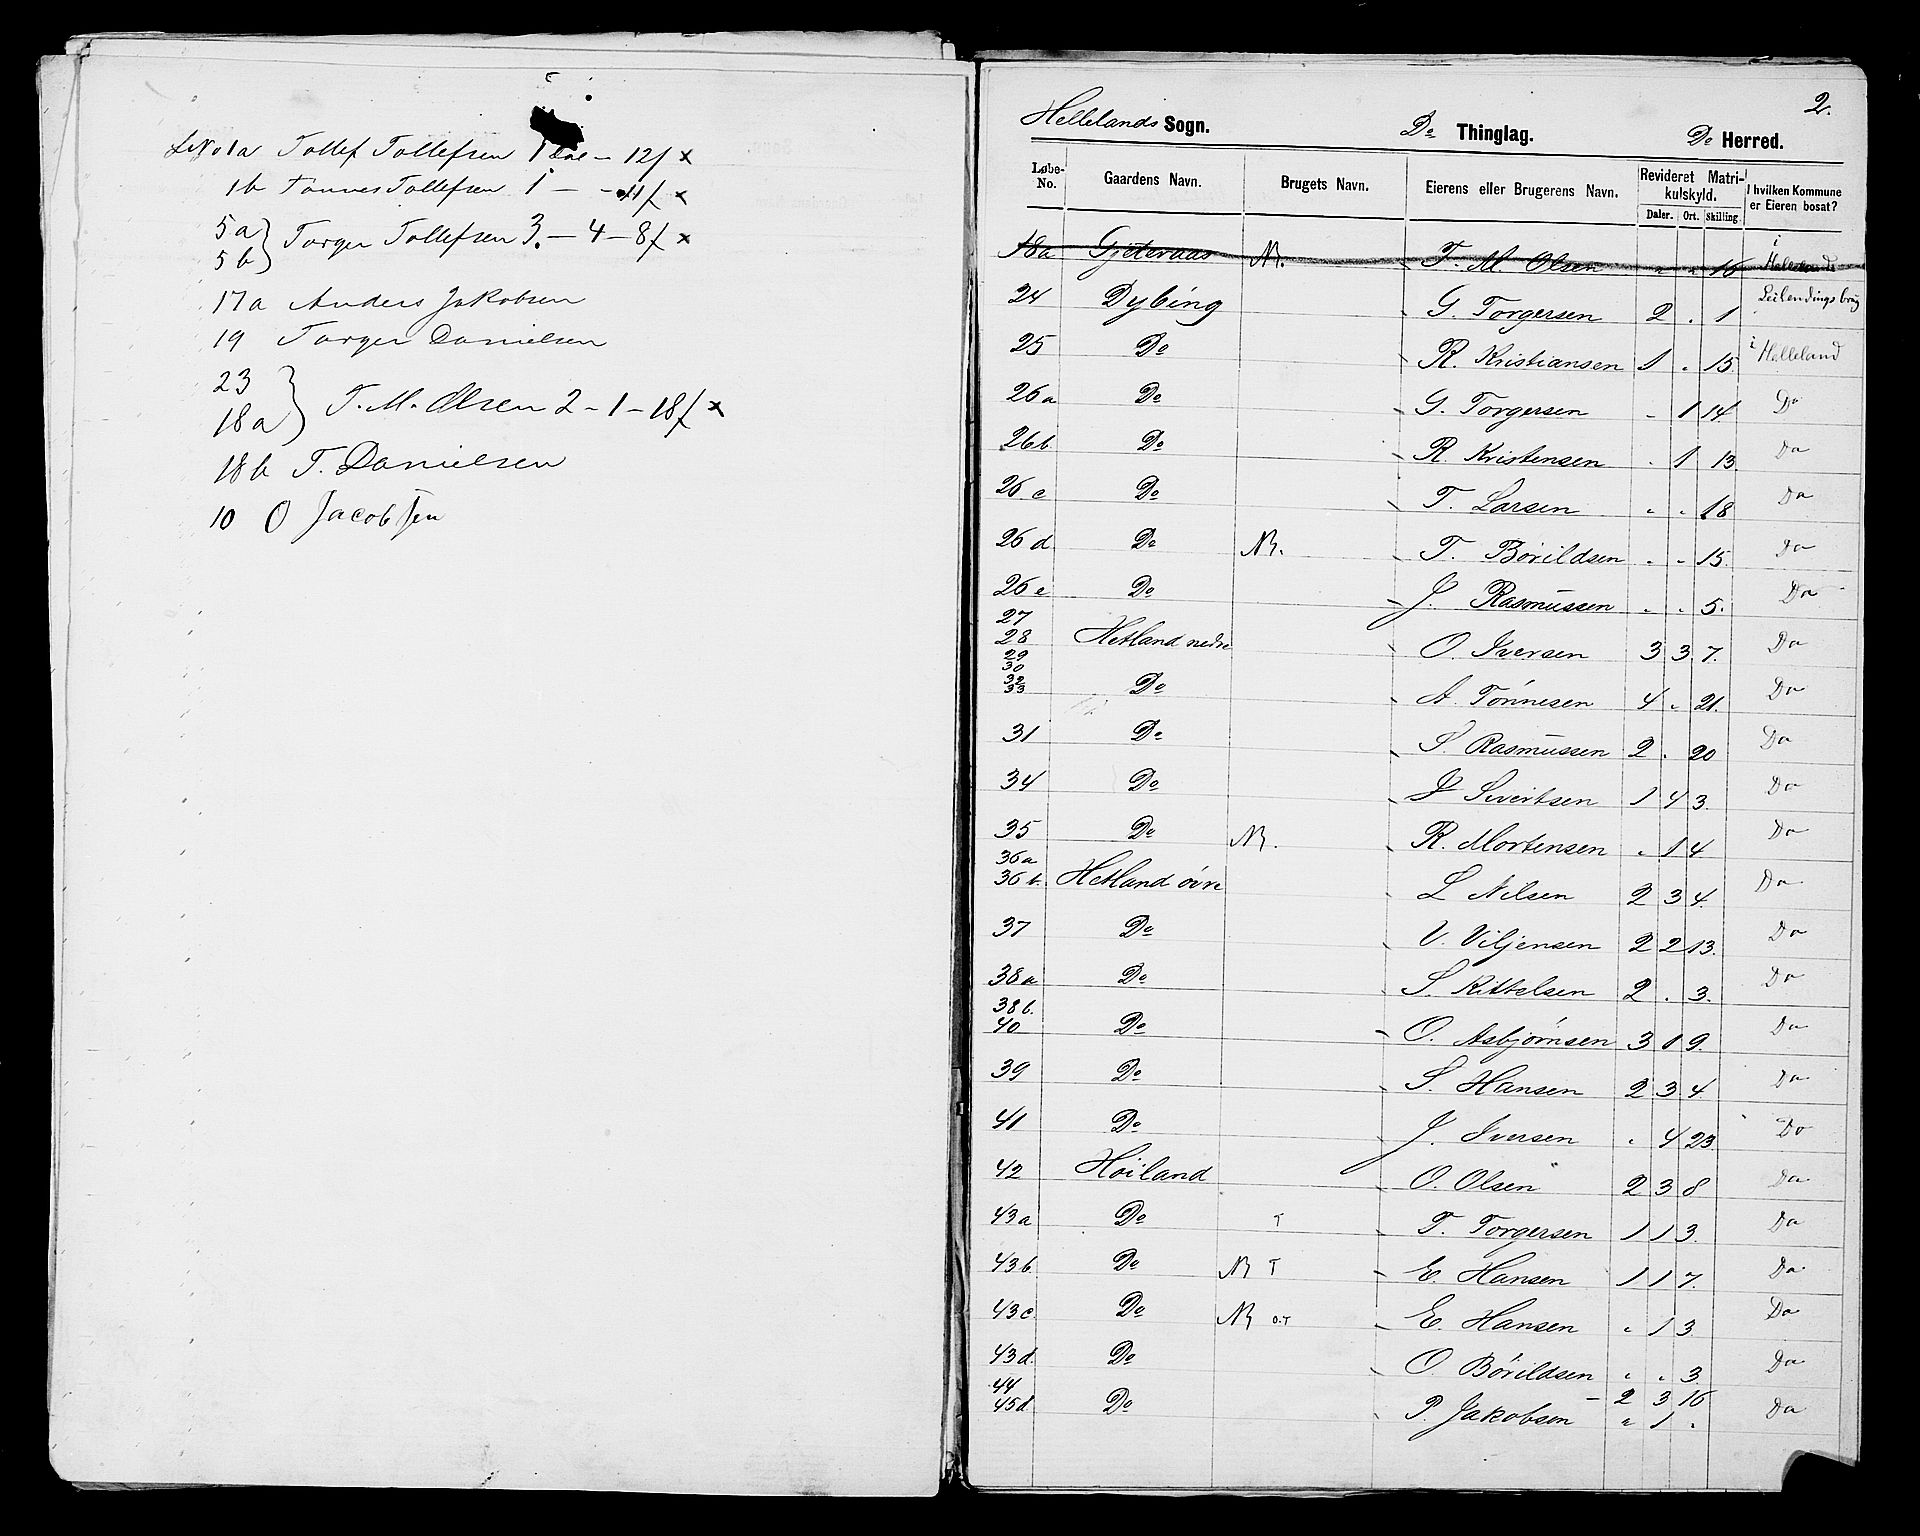 LNo 1a Tollef Tollefsen 1 Dal – 12/ x
1b Tønnes Tollefsen 1 – - 11/ x
5a } Torger Tollefsen 3. – 4 – 8/ x
5b
17a Anders Jakobsen
19 Torger Danielsen
23 } T. M. Olsen 2 – 1 – 18/ x
18a
18b T. Danielsen
10 O Jacobsen
2.
Hellelands Sogn. Do Thinglag. Do Herred.
Løbe-No. Gaardens Navn. Brugets Navn. Eierens eller Brugerens Navn. Revideret Matrikulskyld. Daler. Ort. Skilling I hvilken Kommune er Eieren bosat?
18a Gjeteraas N. T. M. Olsen " " 16 i Helleland
24 Dybing G. Torgersen 2 . 1 Leilendingsbrug
25 Do R. Kristiansen 1 . 15 i Helleland
26a Do G. Torgersen - 1 14 Do
26b. Do R. Kristensen . 1 13. Do
26c Do T. Larsen " " 18 Do
26d Do N. T. Bórildsen " " 15. Do
26e Do J. Rasmussen " " 5. Do
27
28 Hetland nedre O. Iversen 3 3 7. Do
29
30
32
33 Do A. Tónnesen 4 " 21. Do
31 Do S. Rasmussen 2 . 20 Do
34 Do J Sivertsen 1 4 3. Do
35 Do N. R. Mortensen " 1 4 Do
36a
36b. Hetland óvre L Nilsen 2 3 4. Do
37 Do V. Viljensen 2 2 13. Do
38a Do S. Kittelsen 2 . 3. Do
38b.
40 Do O. Asbjórnsen 3 1 9. Do
39 Do S. Hansen 2 3 4 Do
41 Do J. Iversen " 4 23. Do
42 Hoiland O. Olsen 2 3 8 Do
43a Do T T. Torgersen 1 1 3. Do
43b. Do N T E. Hansen 1 1 7. Do
43c. Do N O.T E. Hansen " 1 3. Do
43d. Do O. Bórildsen " " 3. Do
44 2 3 16
45d. Do P. Jakobsen " 1 " Do